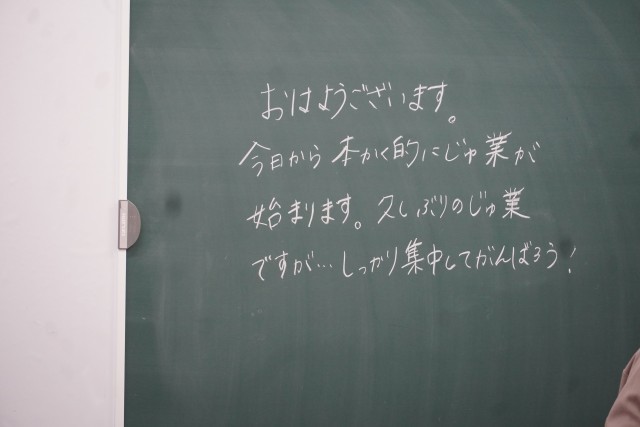 おはようございます。
今日から本かく的にじゅ業が
始まります。久しぶりのじゅ業
ですが…しっかり集中してがんばろう!